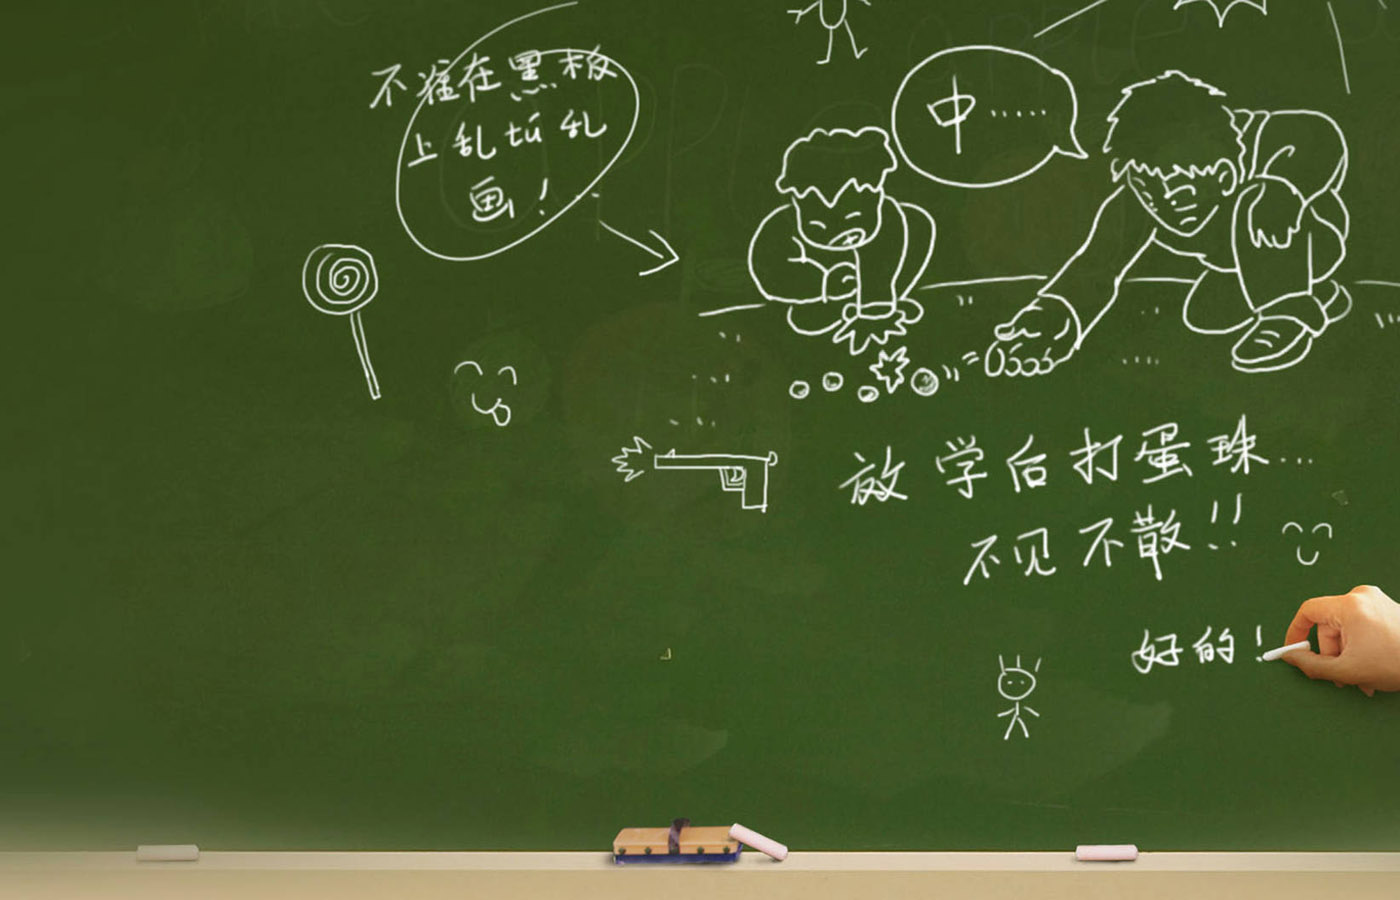 不准在黑板
上乱tú乱
画！
中……
放学后打蛋珠…
不见不散!!
好的！